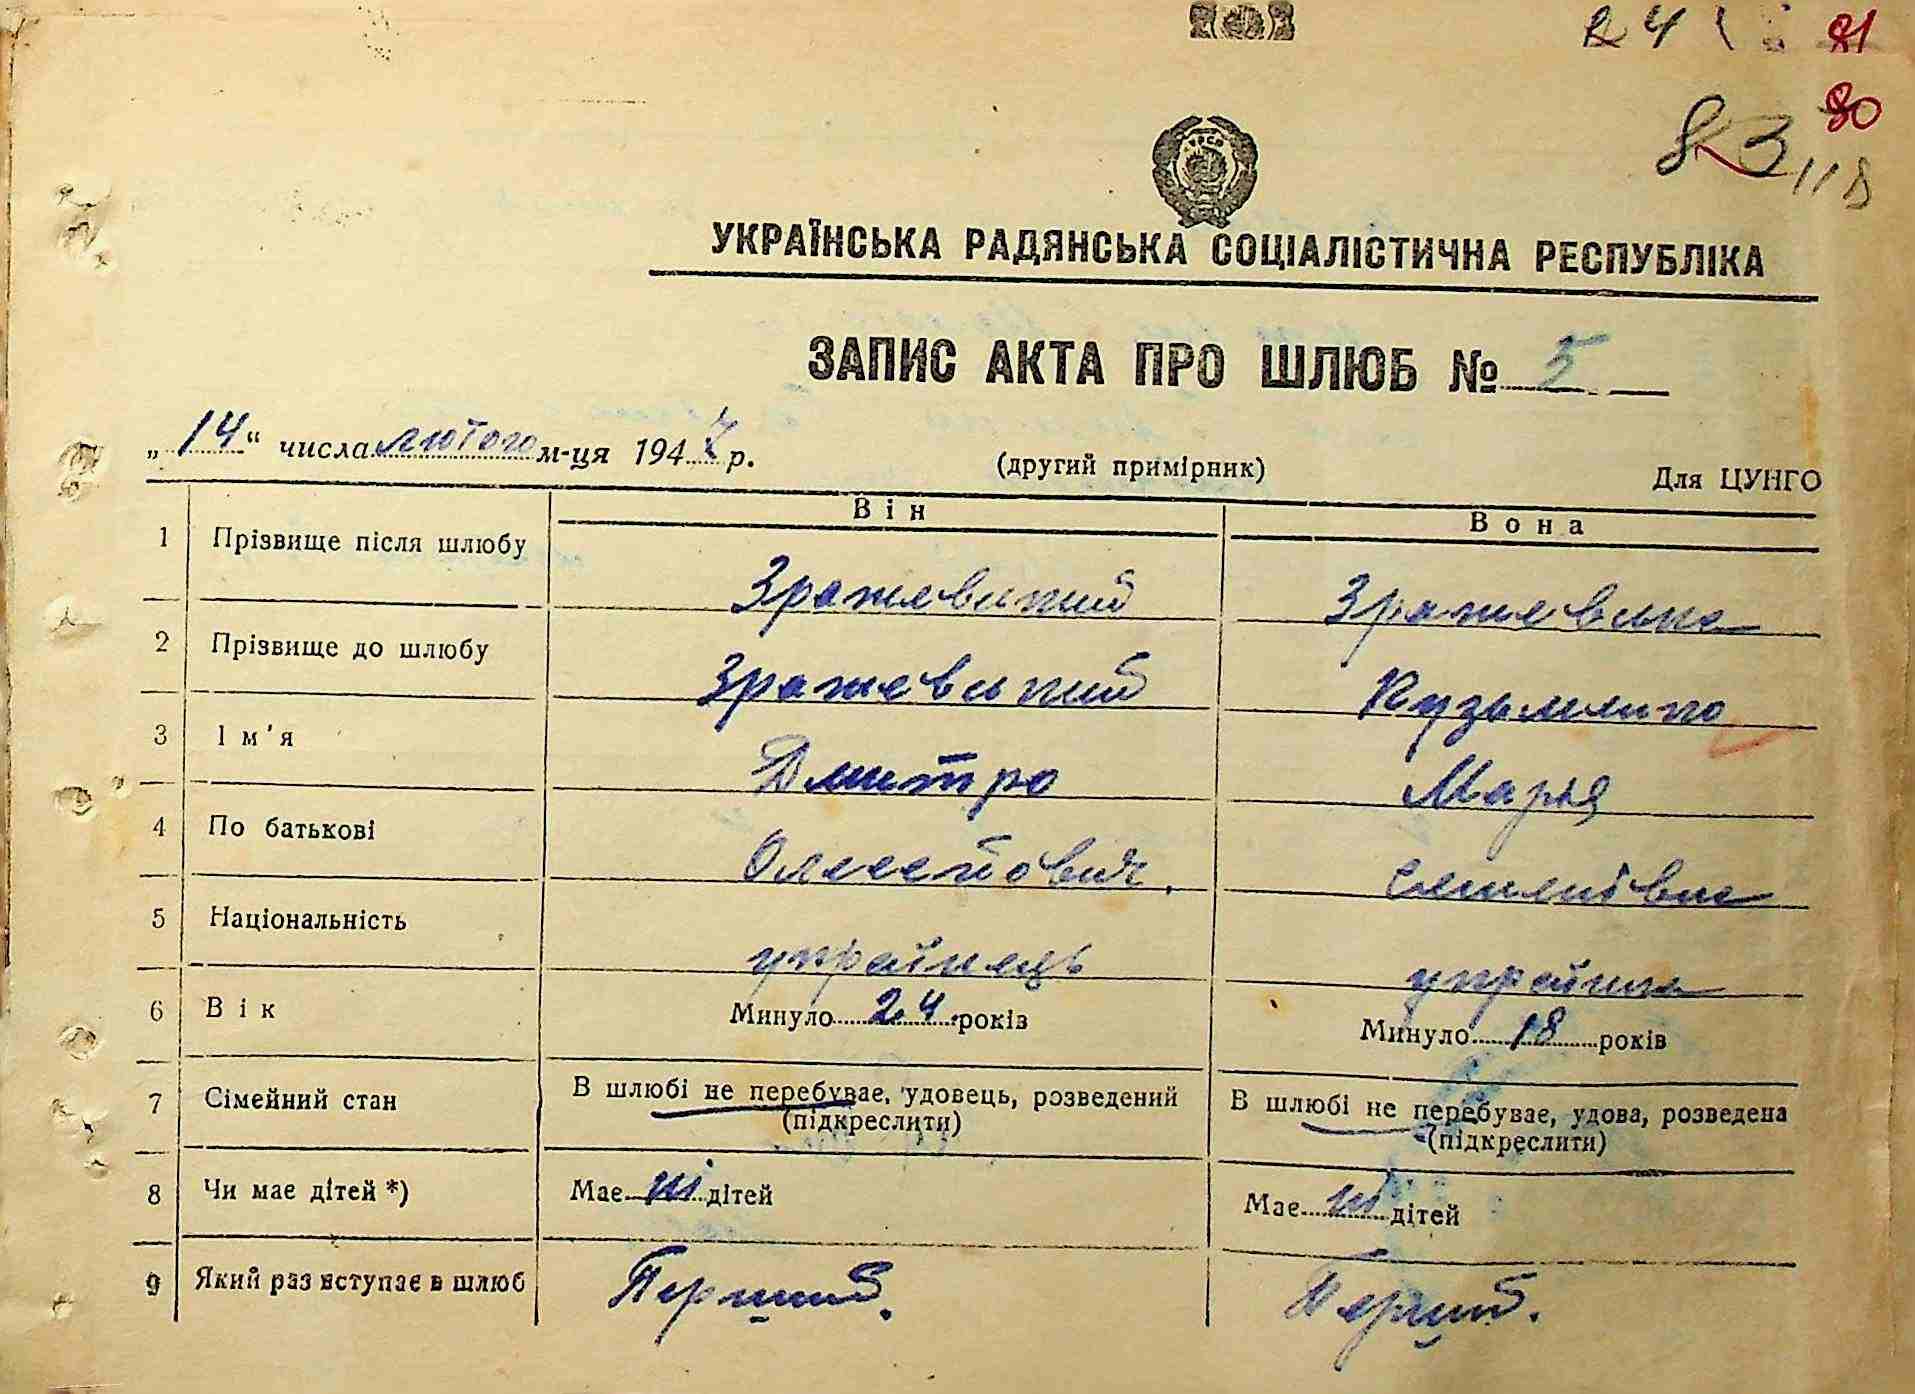 24 81
80
83 118
УРСР
УКРАЇНСЬКА РАДЯНСЬКА СОЦІАЛІСТИЧНА РЕСПУБЛІКА
ЗАПИС АКТА ПРО ШЛЮБ № 5
„14“ числа лютого м-ця 1947 р. (другий примірник) Для ЦУНГО
Він Вона
1 Прізвище після шлюбу Зражевський Зражевська
2 Прізвище до шлюбу Зражевський Кузьменко
3 Ім'я Дмитро Марья
4 По батькові Олексійович.
5 Національність українець українка
6 Вік Минуло 24 років Минуло 18 років
7 Сімейний стан В шлюбі не перебуває, удовець, розведений В шлюбі не перебуває, удова, розведена
(підкреслити) (підкреслити)
8 Чи має дітей *) Має ні дітей Має ні дітей
9 Який раз вступає в шлюб Перший. Перший.